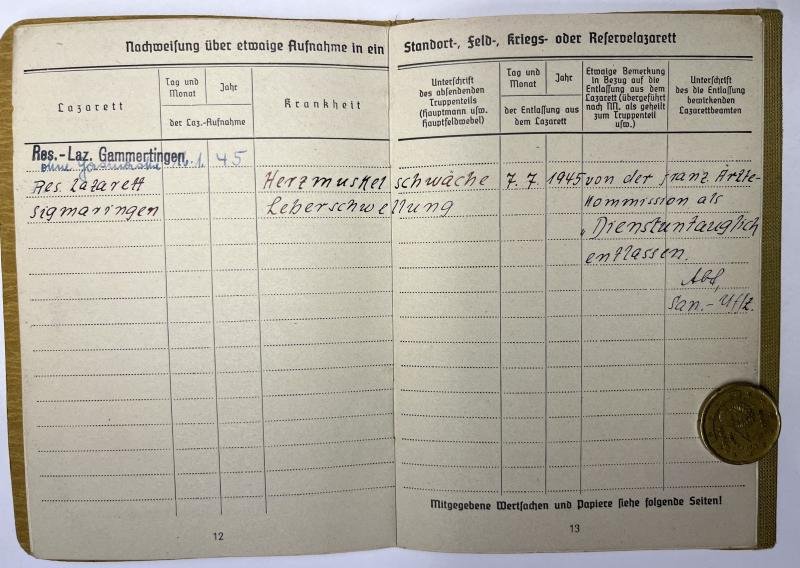 Nachweisung über etwaige Aufnahme in ein Standort-, Feld-, Kriegs- oder Reservelazarett
Lazarett
Tag und
Monat
Jahr
der Laz.-Aufnahme
Krankheit
Unterschrift
des absendenden
Truppenteils
(Hauptmann usw.
Hauptfeldwebel)
Tag und
Monat
Jahr
der Entlassung aus
dem Lazarett
Etwaige Bemerkung
in Bezug auf die
Entlassung aus dem
Lazarett (übergeführt
nach NN. als geheilt
zum Truppenteil
usw.)
Unterschrift
des die Entlassung
bewirkenden
Lazarettbeamten
Res.-Laz. Gammertingen,
ohne 1. 45
Res. Lazarett Herzmuskelschwäche 7. 7. 1945 von der franz. Ärzte-
Sigmaringen Leberschwellung Kommission als
"Dienstuntauglich
entlassen.
San.-Uffz.
Mitgegebene Wertsachen und Papiere siehe folgende Seiten!
12
13